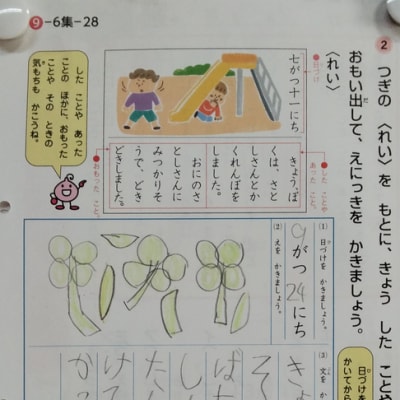 ❾-6集-28
2 つぎの 〈れい〉を もとに、きょう した ことや
おもい出して、えにっきを かきましょう。
〈れい〉
日づけ
七がつ十一にち
した ことや
あった こと。
きょう、ぼ
くは、さと
しさんとか
くれんぼを
しました。
おにのさ
としさんに
みつかりそ
うで、どき
どきしました。
おもった こと。
した ことや あった
ことの ほかに、おもった
ことや その ときの
気もちも かこうね。
(1) 日づけを かきましょう。
9がつ24にち
(2) えを かきましょう。
(3) 文を か
日づけを
かいてから
きょ
そ
ばた
し
たん
けて
か